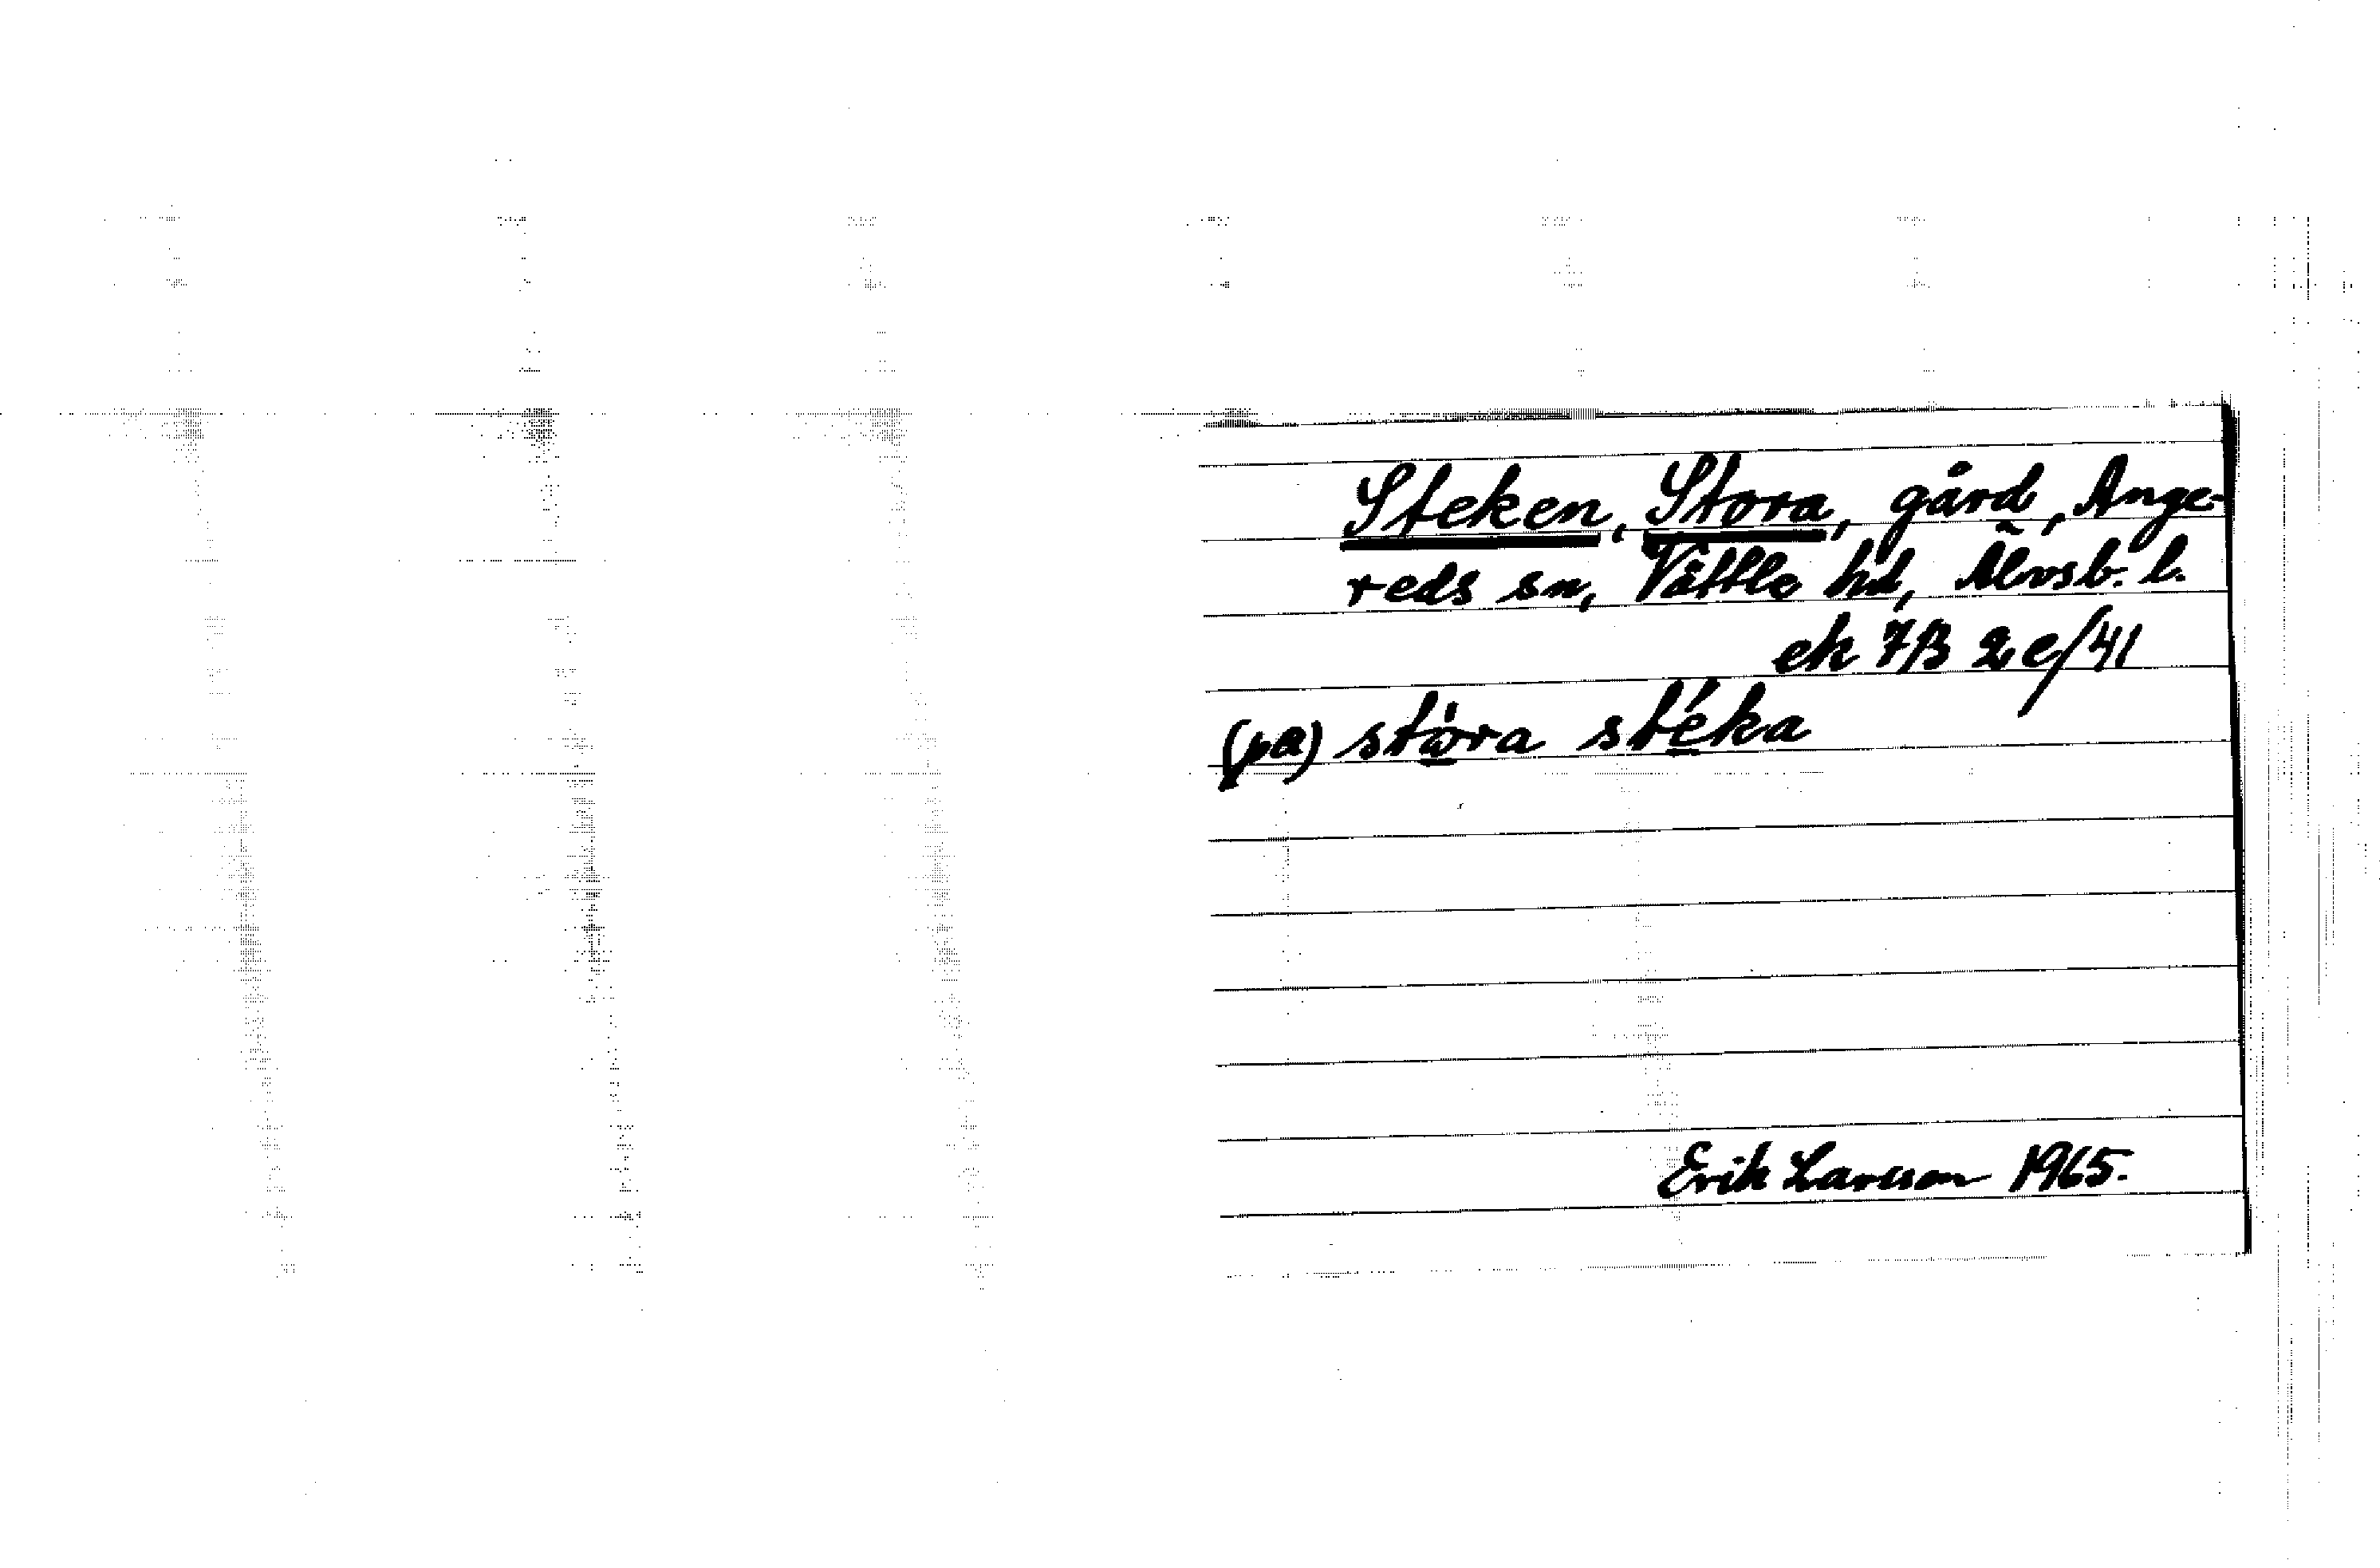 Steken, Stora, gård, Ange-
reds sn, Vättle hd, Älvsb. l.
ek 7B 2e/41
(pa) stòra stéka
Erik Larsson 1965.